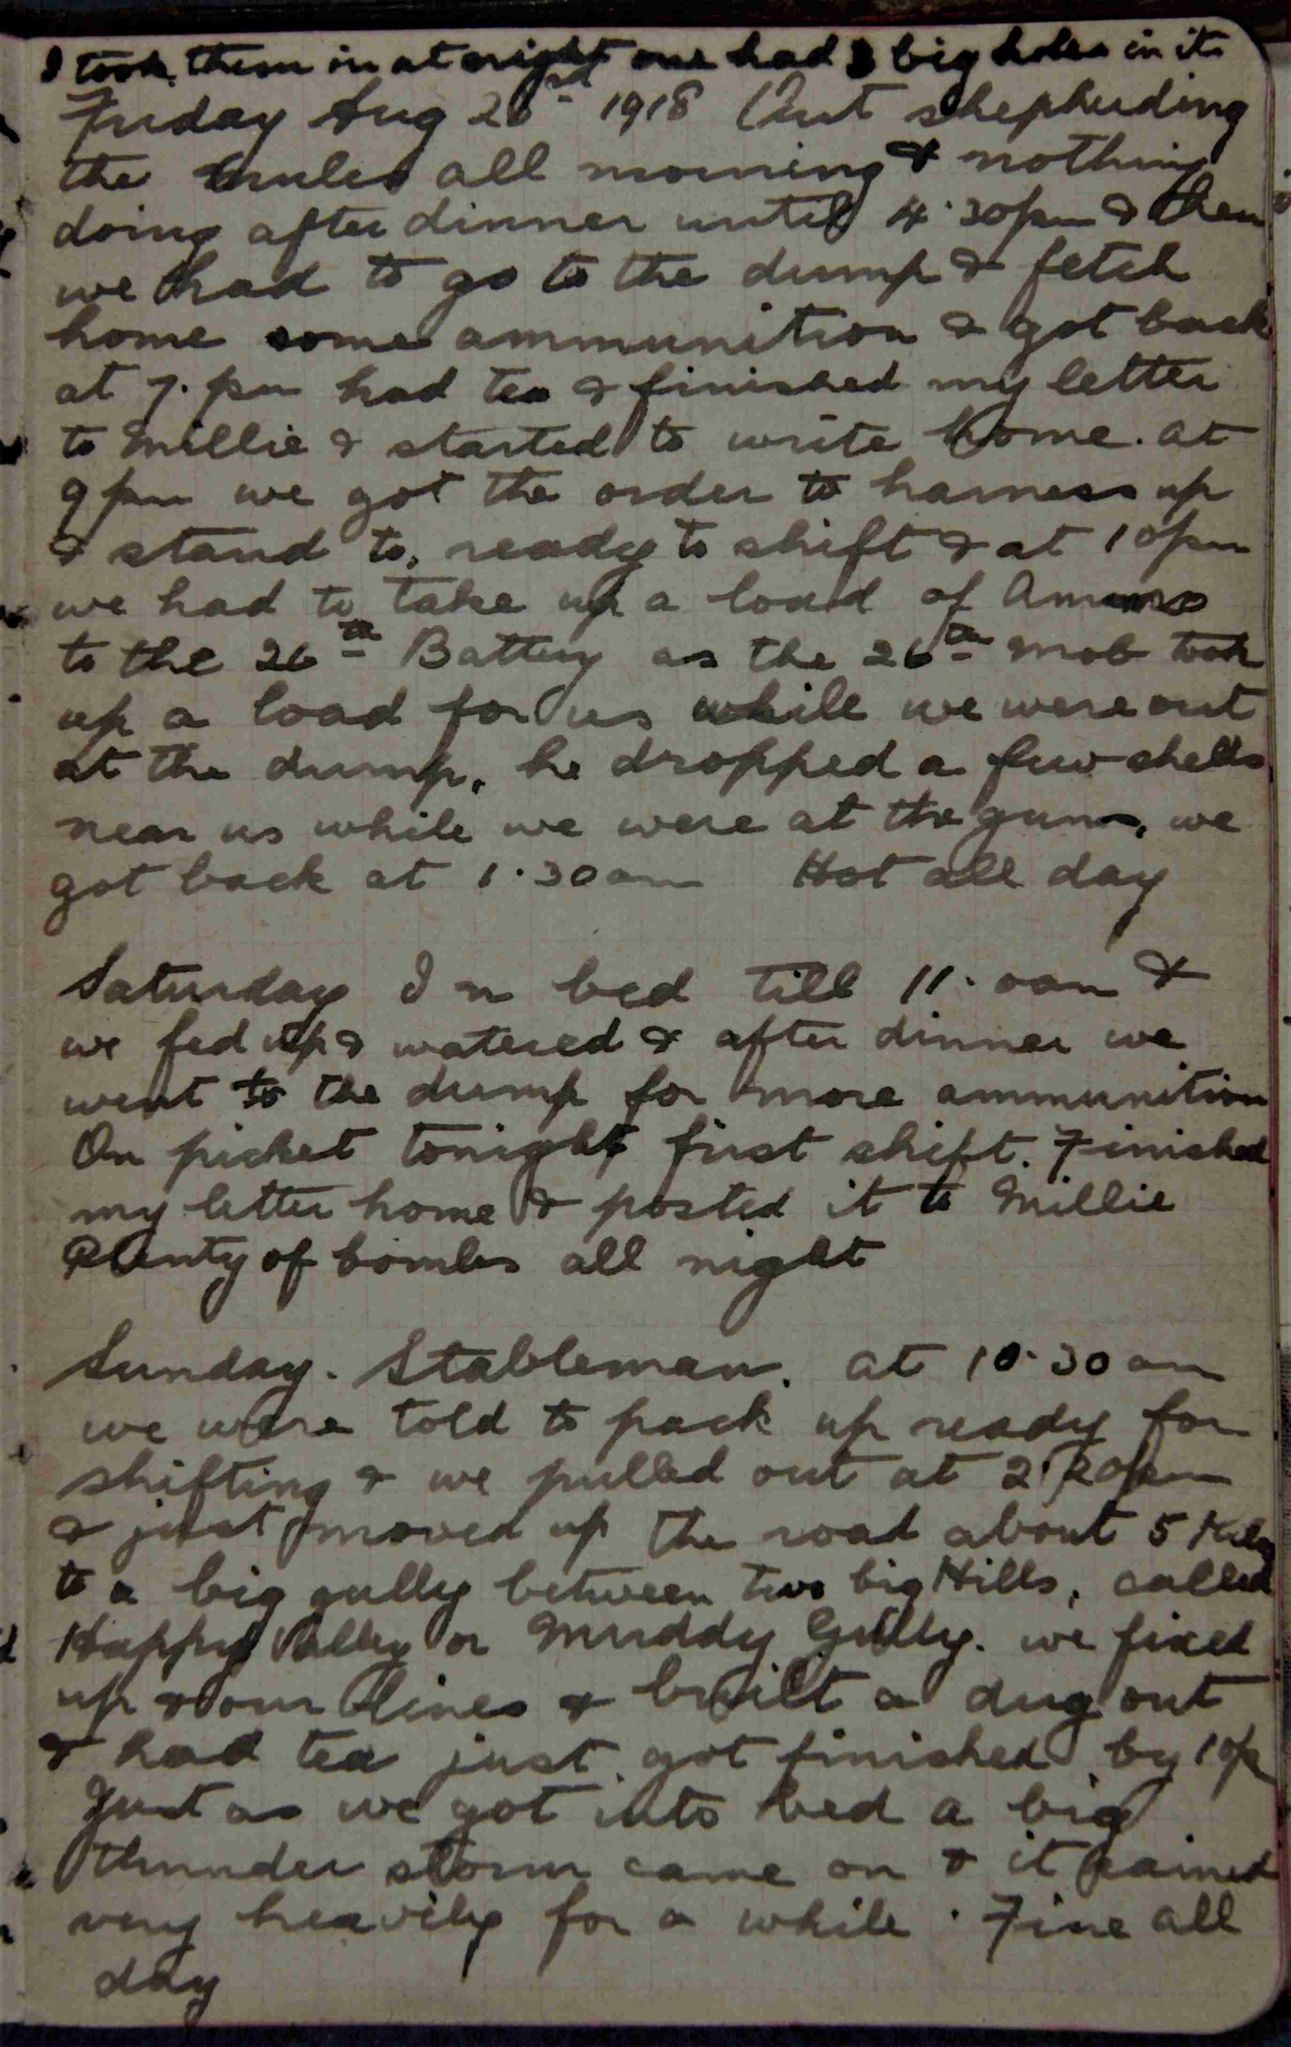 I took them in at night one had 3 big holes in it
Friday Aug 23rd 1918 Out shepherding
the mules all morning & nothing
doing after dinner until 4.30pm & then
we had to go to the dump & fetch
home some ammunition & got back
at 7. pm had tea & finished my letter
to Millie & started to write home. at
9 pm we got the order to harness up
& stand to, ready to shift & at 10pm
we had to take up a load of Ammo
to the 26th Battery as the 26th mob took
up a load for us while we were out
at the dump, he dropped a few shells
near us while we were at the guns, we
got back at 1.30am Hot all day
Saturday In bed till 11.00am &
we fed up & watered & after dinner we
went to the dump for more ammunition
On picket tonight first shift. Finished
my letter home & posted it to Millie
Plenty of bombs all night
Sunday. Stableman. at 10.30 am
we were told to pack up ready for
shifting & we pulled out at 2.20pm
& just moved up the road about 5 Kilo
to a big gully between two big Hills, called
Happy Valley or Muddy Gully. we fixed
up our lines & built a dug out
& had tea just got finished by 10p
Just as we got into bed a big
thunder storm came on & it rained
very heavily for a while. Fine all
day